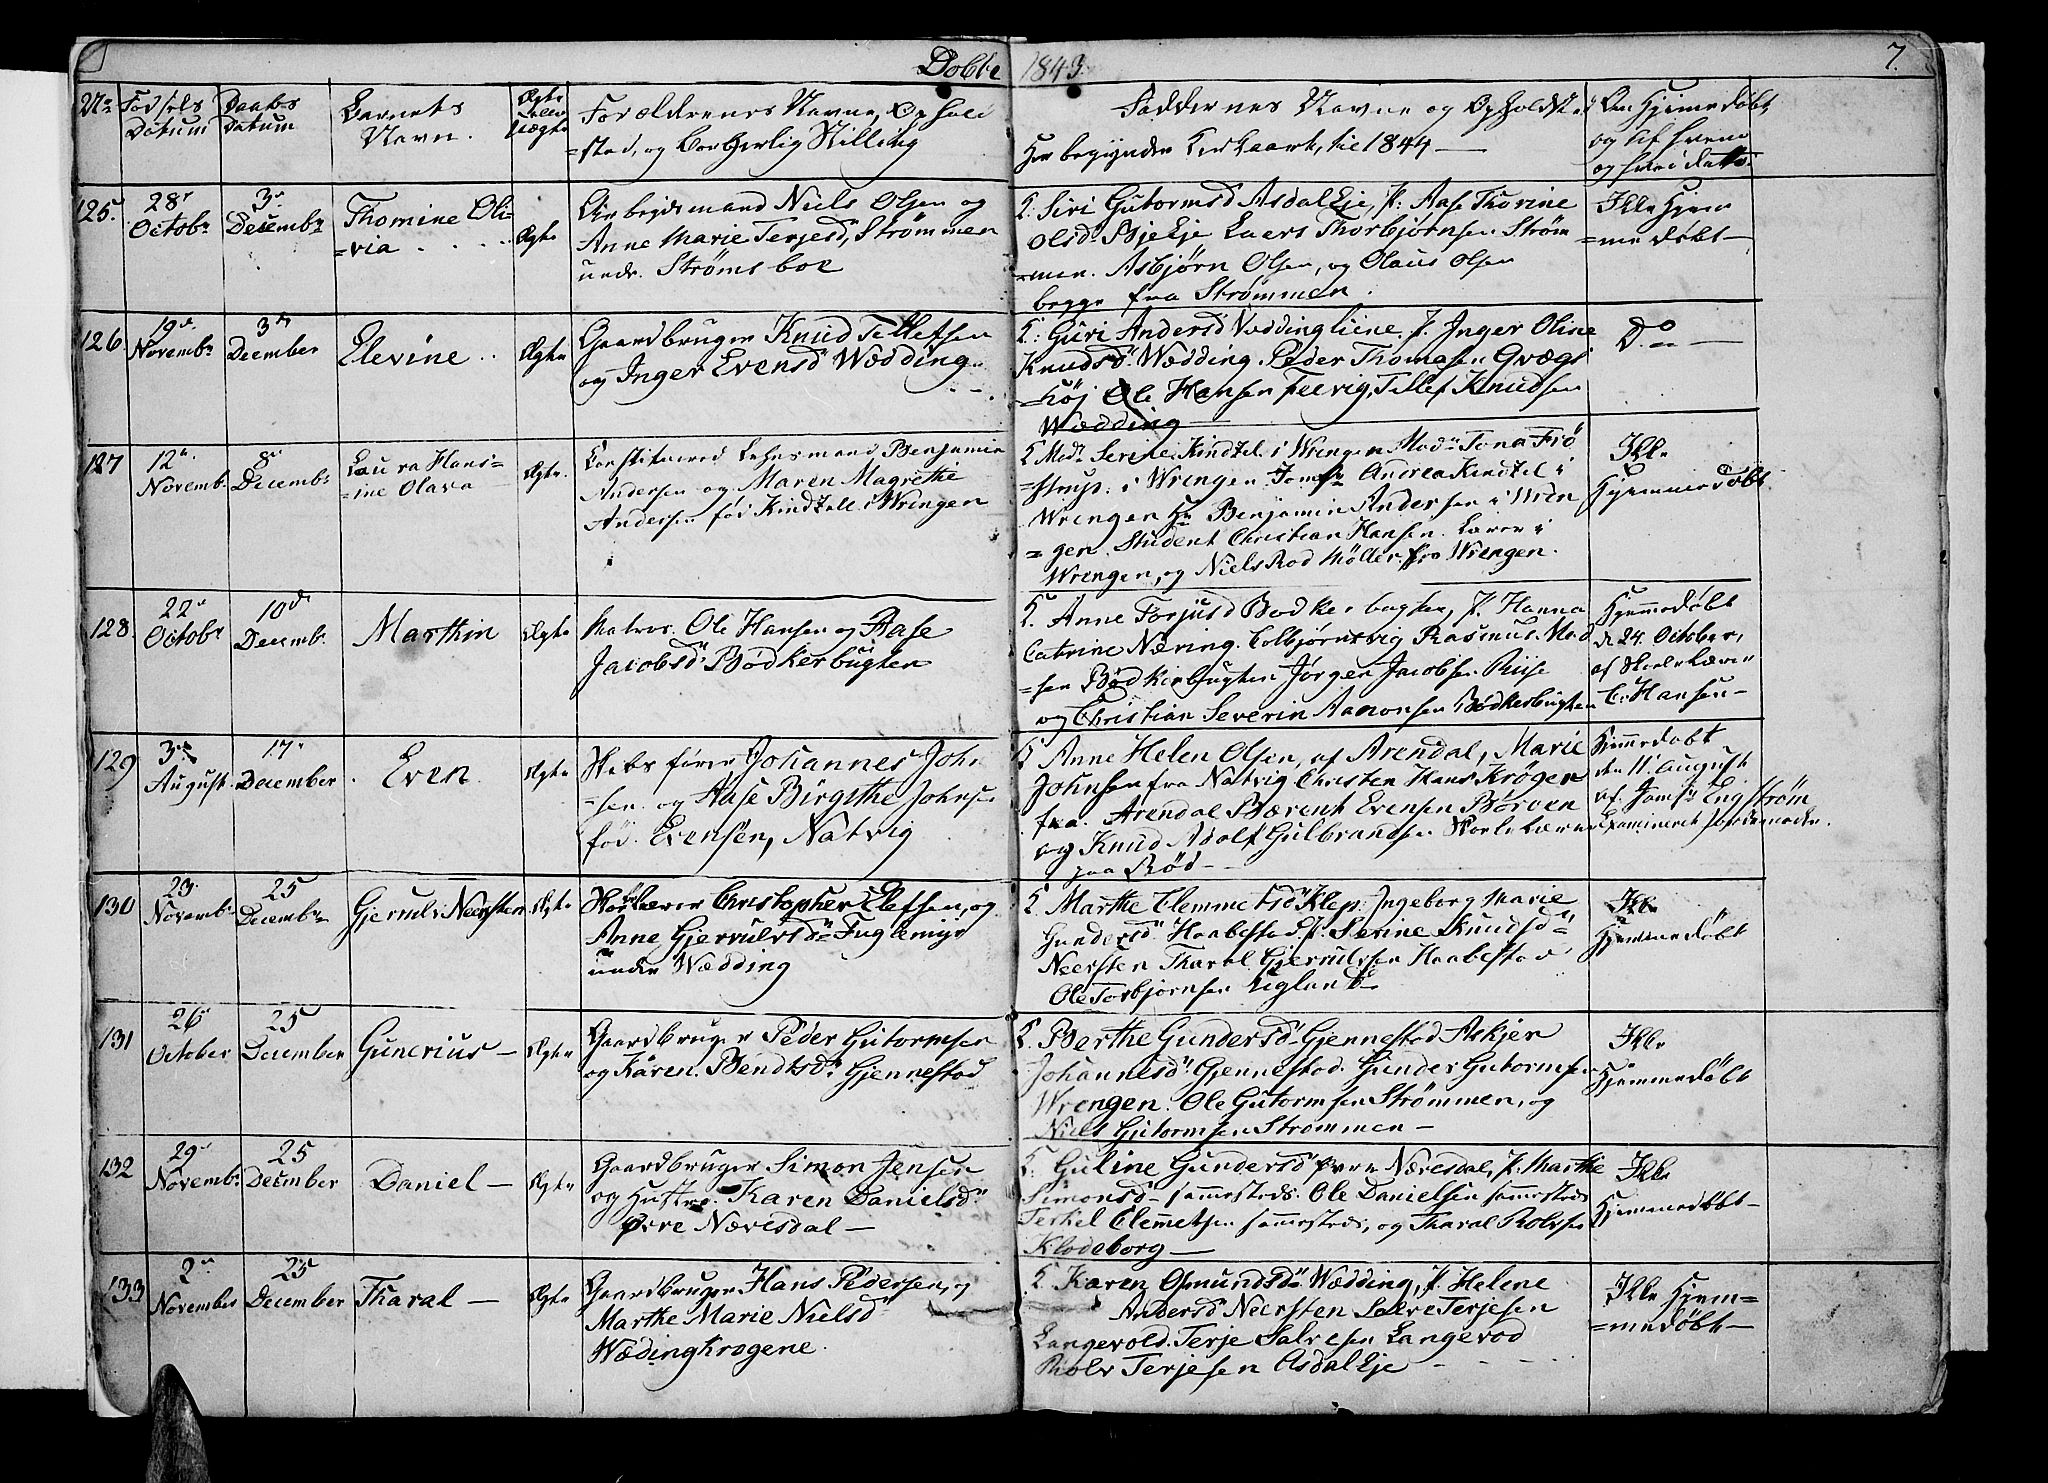 Døbte 1843. 7.
No Fødsels Datum
Daabs Datum
Barnets Navn.
Ægte eller Uægte
Forældrenes Navne, Ophold
=sted, og Borgerlig Stilling
Faddernes Navne og Opholdsted
Her begynder Kirkeaaret, til 1844 —
Om Hjemedøbt,
og af hvem
og hvor
125.
28de Octobr
3de Decembr
Thomine Oli-
=via
Ægte
Arbeidsmand Niels Olsen og
Anne Marie Terjesd, Strømmen
undr. Strømsboe
K. Siri Gutormsd Asdal Eje, P. Aase Thorine
Olsd Bje Eje Laers Thorbjørnsen Strøm
=men. Asbjørn Olsen, og Olaus Olsen
begge fra Strømmen.
Ikke Hjem
=me døbt —
126
19de Novembr
3de December
Elevine
Ægte
Gaardbruger Knud Tellefsen
og Inger Evensd Wædding
K: Guri Andersd Wæddingliene, P. Inger Oline
Knudsd Wædding. Peder Thomasen Grægs
=høj Ole Hansen Fevig, Tellef Knudsen
Wædding
Do —
127
12te Novemb.
8de Decembr
Laura Hans=
=ine Olava
Ægte
Constituered Lehnsmand, Benjamin
Andersen og Maren Magrethe
Andersen fød Kindtell i Wrengen
K Mad. Serine Kindtel i Wrengen Mad. Tona Frö
=strup i Wrengen Jomfr Andrea Kindtel i
Wrengen Hr Benjamin Andersen i Wren
=gen. Student Christian Hansen. Lærer i
Wrengen, og Niels Rod Møller fra Wrengen.
Ikke
Hjemmedøbt
128.
22de Octobr
10de Decembr.
Marthin
Ægte
Matros. Ole Hansen og Aase
Jacobsd Bødkerbugten
K. Anne Torjusd Bødkerbugten, P. Hanna
Catrine Næring. Colbjørnsvig Rasmus Mad
=sen Bødkerbugten Jørgen Jacobsen Riise
og Christian Severin Aanonsen Bødkerbugten
Hjemmedøbt
d. 24. October,
af Skolelærer
C. Hansen —
129
3de August
17de December
Even
Ægte
Skibsfører Johannes John
=sen og Aase Birgithe Johnsen
fød. Evensen, Natvig
K Anne Helen Olsen, af Arendal, Marie
Johnsen fra Natvig Christen Hans Krøger
fra. Arendal Bærent Evensen Børoen
og Knud Adolf Gulbrandsen Skolelærer
paa Rød —
Hjemmedøbt
den 11. August
af. Jomfr Engstrøm
Examineret Jordemoder.
130
23. Novembr
25 Decembr
Gjerulv Neersten
Ægte
Skolelærer Christopher Elefsen, og
Anne Gjerrulvsd Fuglemyr
under Wædding
K Marthe Clemmetsd Klep. Ingeborg Marie
Gundersd Haabestad P. Serine Knudsd
Neersten Tharal Gjerrulvsen Haabestad
Ole Torbjørnsen Liglund
Ikke
Hjemmedøbt
131
26de October
25 December
Gunerius —
Ægte
Gaardbruger Peder Gutormsen
og Karen Bendtsd Gjennestad
K. Berthe Gundersd Gjennestad Askjer
Johannesd Gjennestad. Gunder Gutormsen
Wrengen. Ole Gutormsen Strømmen, og
Niels Gutormsen Strømmen —
Ikke
Hjemmedøbt
132
29de Novembr
25 December
Daniel —
Ægte
Gaardbruger Simon Jensen
og Hustro. Karen Danielsd
Øvre Næresdal —
K. Guline Gundersd Øvre Næresdal, P. Marthe
Simonsd sammesteds. Ole Danielsen sammesteds
Terkel Clemmetsen sammesteds, og Tharal Rolvsen
Klodeborg —
Ikke
Hjemmedøbt —
133
2den November
25 December
Tharal —
Ægte
Gaardbruger Hans Pedersen, og
Marthe Marie Nielsd
Wædingkrogene.
K. Karen Osmundsd Wædding, P. Helene
Andersd Neersten Salve Terjesen
Langevold. Terje Salvesen Langevod
Rolv Terjesen Asdal Eje
Ikke Hjem=
=medøbt —